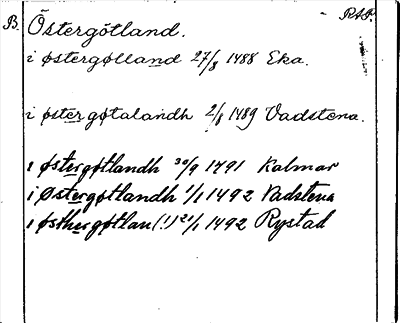 B. Östergötland. RAP.
i østergølland 27/8 1488 Eka.
i østergøtalandh 2/8 1489 Vadstena.
i østergøtlandh 30/9 1491 Kalmar
i Østergøtlandh 1/1 1492 Vadstena
i østhergøtlan (!) 21/1 1492 Rystad